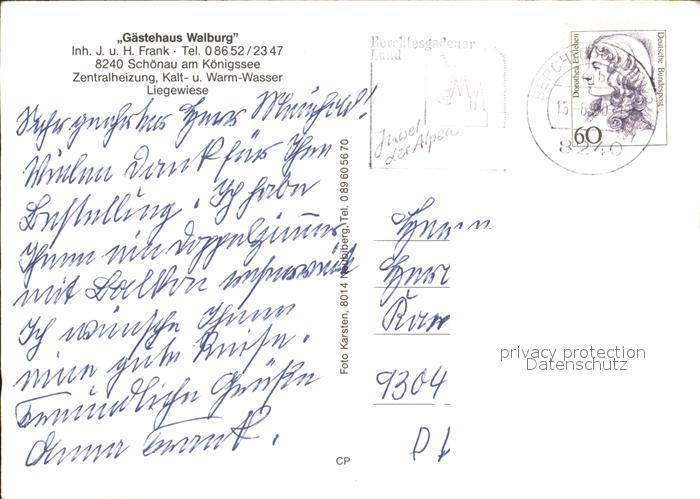 „Gästehaus Walburg"
Inh. J. u. H. Frank · Tel. 0 86 52 / 23 47
8240 Schönau am Königssee
Zentralheizung, Kalt- u. Warm-Wasser
Liegewiese
Sehr geehrter Herr
Vielen Dank für Ihre
Bestellung. Ich habe
Ihnen ein Doppelzimmer
mit Balkon reserviert
Ich wünsche Ihnen
eine gute Reise.
Freundliche Grüße
Anna Frank.
Foto Karsten, 8014 Neubiberg, Tel. 0 89 60 56 70
CP
Berchtesgadener
Land
Juwel
der Alpen
8240
Dorothea Erxleben
Deutsche Bundespost
60
Herrn
9304
privacy protection
Datenschutz